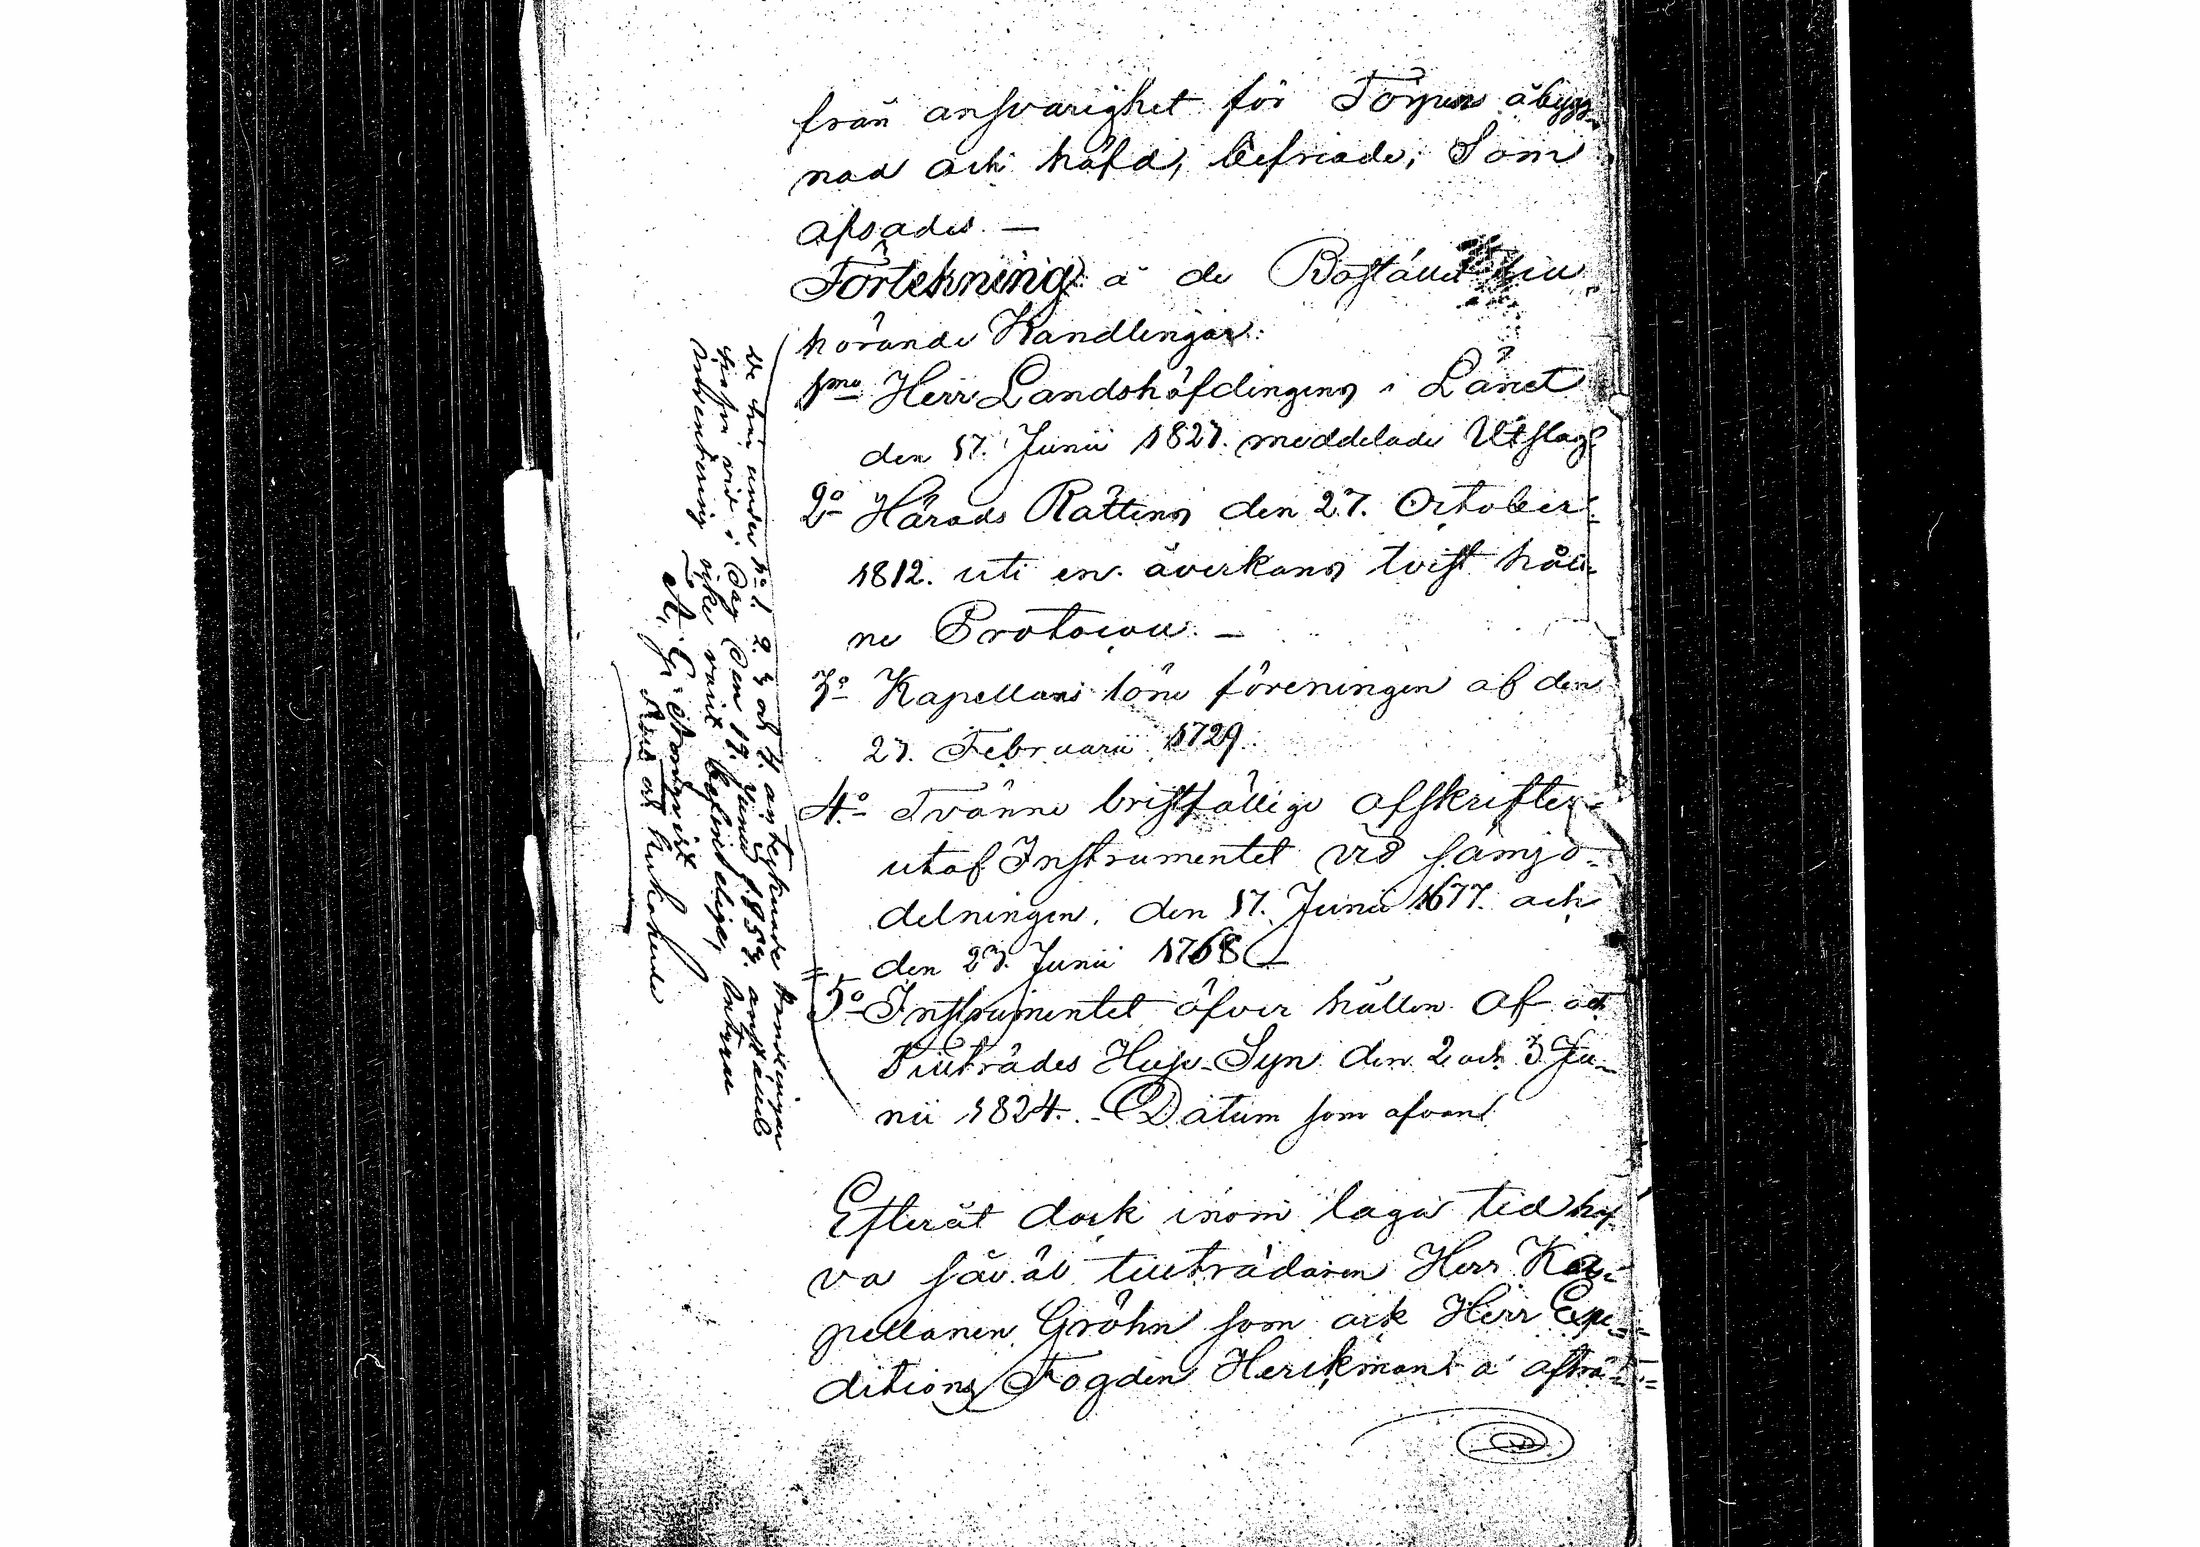 från ansvarighet för Torpens åbygg-
nad och häfd, befriade; Som
afsades. —
Förtekning å de Bostället till
hörande Handlingar:
1mo Herr Landshöfdingens i Länet
den 17. Junii 1827. meddelade Utslag
2o Härads Rättens den 27. October
1812. uti en åverkans tvist håll-
ne Protocoll. —
3o Kapellans löne föreningen af den
27. Februarii 1729.
4o Tvänne bristfällige afskrifter
utaf Instrumentet vid sämjo-
delningen, den 17. Junii 1677. och
den 23. Junii 1768
5o Instrumentet öfver hållen Af och
Tillträdes Huse-Syn den 2 och 3 Ju-
nii 1824. - Datum som ofvan
Efteråt dock inom laga tid haf-
va såväl tillträdaren Herr Ka-
pellanen Gröhn som ock Herr Expe-
ditions Fogden Herckman å afträ-
De här under No 1. 2. 3 och 4. antecknade handlingar
hafva vid i Dag Den 17. Junii anstäld
Inventering icke varit befintelige,